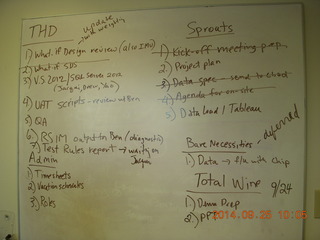 THD
update with weights
1) What if Design review (also IMU)
2) What if SDS
3) VS 2012/SQL Server 2012
4) UAT scripts - review w/ Ben
5) QA
6) RSIM output to Ben (diagnostic)
7) Test Rules report → waiting on
Admin
1) Timesheets
2) Vacation schedules
3) Roles
Sprouts
1) Kick-off meeting prep
2) Project plan
3) Data spec - send to client
4) Agenda for on-site
5) Data load / Tableau
Bare Necessities - deferred
1) Data → f/u with Chip
Total Wine 9/24
1) Demo Prep
2) PPT
2014.09.25 10:05